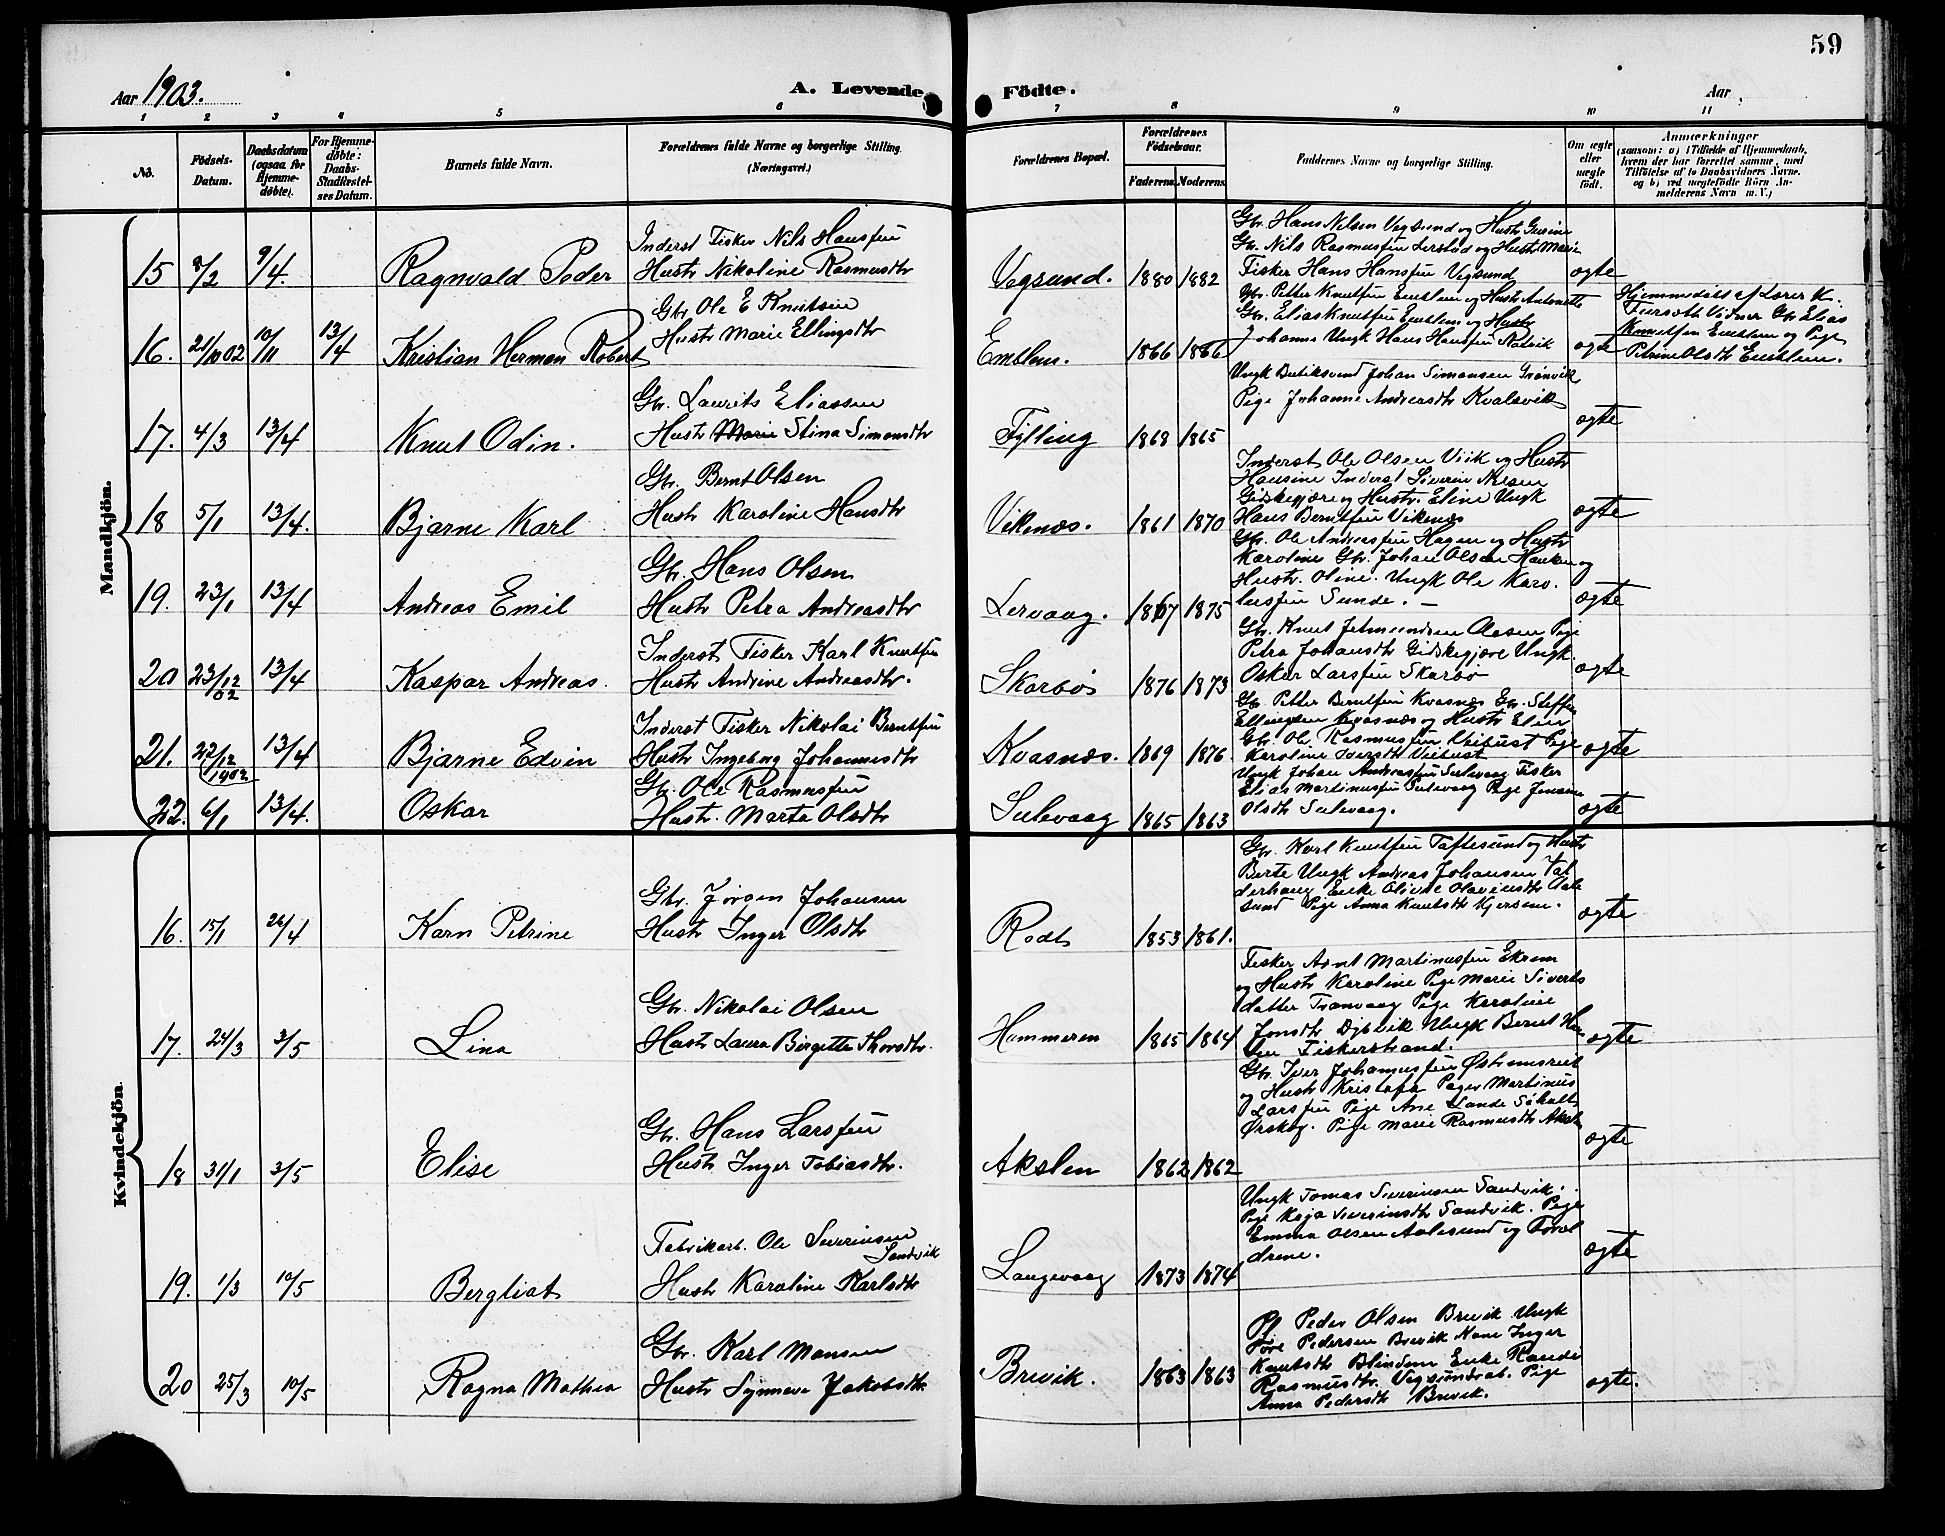 59
Aar 1903.
A. Levende Födte.
Aar
1 2 3 4 5 6 7 8 9 10 11
No.
Födsels-Datum.
Daabsdatum (ogsaa for Hjemme-döbte).
For Hjemme-döbte: Daabs-Stadfæstel-ses Datum.
Barnets fulde Navn.
Forældrenes fulde Navne og borgerlige Stilling. (Næringsvei.)
Forældrenes Bopæl.
Forældrenes Födselsaar.
Faderens. Moderens.
Faddernes Navne og borgerlige Stilling.
Om ægte eller uægte født.
Anmærkninger
(saasom: a) i Tilfælde af Hjemmedaab, hvem der har forrettet samme, med Tilföielse af to Daabsvidners Navne. og b) ved uægtefödte Börn An-melderens Navn m. V.)
Mandkjön.
15 8/2 9/4. Ragnvald Peder
Inderst Fisker Nils Hansen
Hustr Nikoline Rasmusdtr
Vegsund. 1880 1882
Gbr. Hans Nilsen Vegsund og Hustr
Gbr. Nils Rasmussen Lerstad og Hustr Marie
Fisker Hans Hansen Vegsund
ægte
16. 21/10 02 10/11 13/4 Kristian Herman Robert
Gbr Ole E Knutsen
Hustr Marie Ellingsdtr
Emblem. 1866 1866
Gbr. Petter Knutsen Emblem og Hustr Antonette
Gbr. Elias Knutsen Emblem og Hustr
Johanna Ungk Hans Hansen
ægte
Hjemmedøbt af Lærer K.
Vidner Gbr Elias
Knutsen Emblem og Pige
Petrine Olsdtr Emblem.
17. 4/3 13/4 Knut Odin.
Gbr. Laurits Eliassen
Hustr Stina Simonsdtr
Fylling 1868 1865
Ungk Butiksvend Johan Simonsen Grønvik
Pige Johanne Andreasdtr Kvalsvik
ægte
18 5/1 13/4. Bjarne Karl
Gbr. Bernt Olsen
Hustr Karoline Hansdtr
Vikenæs. 1861 1870
Inderst Ole Olsen Viik og Hustr
Hansine Inderst Siverin Nilsen
Gidskegjære og Hustr. Eline Ungk
Hans Berntsen Vikenæs
ægte
19. 23/1 13/4 Andreas Emil
Gbr. Hans Olsen
Hustr Petra Andreasdtr
Lervaag. 1867 1875
Gbr. Ole Andreassen Hagen og Hustr
Karoline Gbr. Johan Olsen Hauken og
Hustr Oline. Ungk Ole Karo-
lussen Sunde.
ægte
20 23/12 02 13/4 Kaspar Andreas.
Inderst Fisker Karl Knutsen
Hustr Andrine Andreasdtr.
Skarbø 1876 1873
Gbr. Knut Jetmundsen Aasen Pige
Petra Johansdtr Gidskegjære Ungk.
Oskar Larssen Skarbø
ægte
21. 22/12 1902 13/4 Bjarne Edvin
Inderst Fisker Nikolai Berntsen
Hustr Ingeborg Johannesdtr
Kvasnæs. 1869 1876
Gbr. Petter Berntsen Kvasnæs Gbr. Steffen
Ellingsen Kvasnæs og Hustr Elen
Gbr. Ole Rasmussen Veibust Pige
Karoline Iversdtr Veibust
ægte
22. 6/1 13/4. Oskar
Gbr. Ole Rasmussen
Hustr. Marta Olsdtr
Sulevaag 1865 1863
Ungk Johan Andreassen Sulevaag Fisker
Elias Martinussen Sulevaag Pige Jensine
Olsdtr Sulevaag.
ægte
Kvindekjön.
16. 15/1 26/4 Karn Petrine
Gbr. Jørgen Johansen
Hustr Inger Olsdtr
Rødt 1853 1861.
Gbr. Karl Knutsen Taftesund og Hustr
Berte Ungk Andreas Johansen Val-
derhaug Enke Olivie Olavinsdtr Aale-
sund Pige Anna Knutsdtr Kjersem.
ægte
17. 24/3 3/5 Lina
Gbr. Nikolai Olsen
Hustr Laura Birgette Thorsdtr.
Hammeren 1865 1864
Fisker Arnt Martinussen Ekrem
og Hustr Karoline Pige Marie Siverts
datter Tranvaag Pige Karoline
Jonsdtr Djbvik Ungk Bernt Han-
sen Fiskerstrand.
ægte
18 31/1 3/5 Elise
Gbr. Hans Larssen
Hustr Inger Tobiasdtr.
Akslen 1862 1862
Gbr. Iver Johannessen Østremsrust
og Hustr Kristofa Pager Martinus
Larssen Pige Ane Lande Søholt
Ørskog. Pige Marie Rasmusdtr Akslen
ægte
19. 1/3 10/5 Bergliot
Fabrikarb. Ole Severinsen
Sandvik
Hustr Karoline Karlsdtr
Langevaag 1873 1874
Ungk Tomas Severinsen Sandvik.
Pige Kaja Severinsdtr Sandvik. Pige
Emma Olsen Aalesund og Foræl-
drene.
ægte
20 25/3 10/5 Ragna Mathea
Gbr. Karl Monsen
Hustr Synneve Jakobsdtr.
Brevik. 1863 1863
Peder Olsen Brevik Ungk
Tore Pedersen Brevik Kone Inger
Knutsdtr Blindem Enke Rande
Rasmusdtr. Vegsundrab. Pige
Anna Pedersdtr Brevik.
ægte.